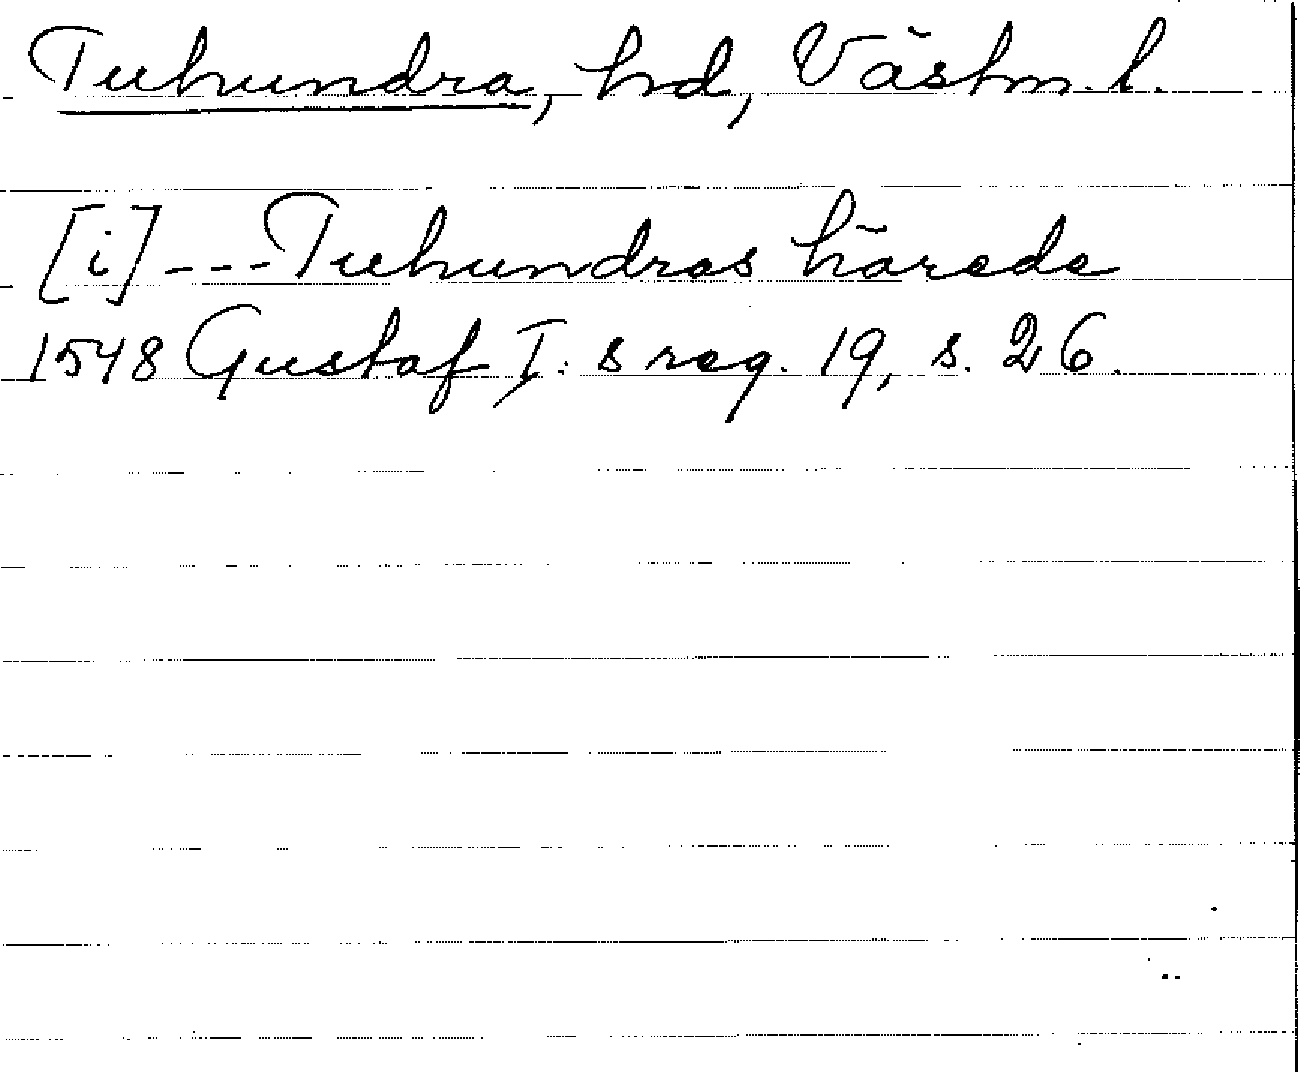 Tuhundra, hd, Västm. l.
[i] --- Tuhundras härede
1548 Gustaf I:s reg. 19, s. 26.